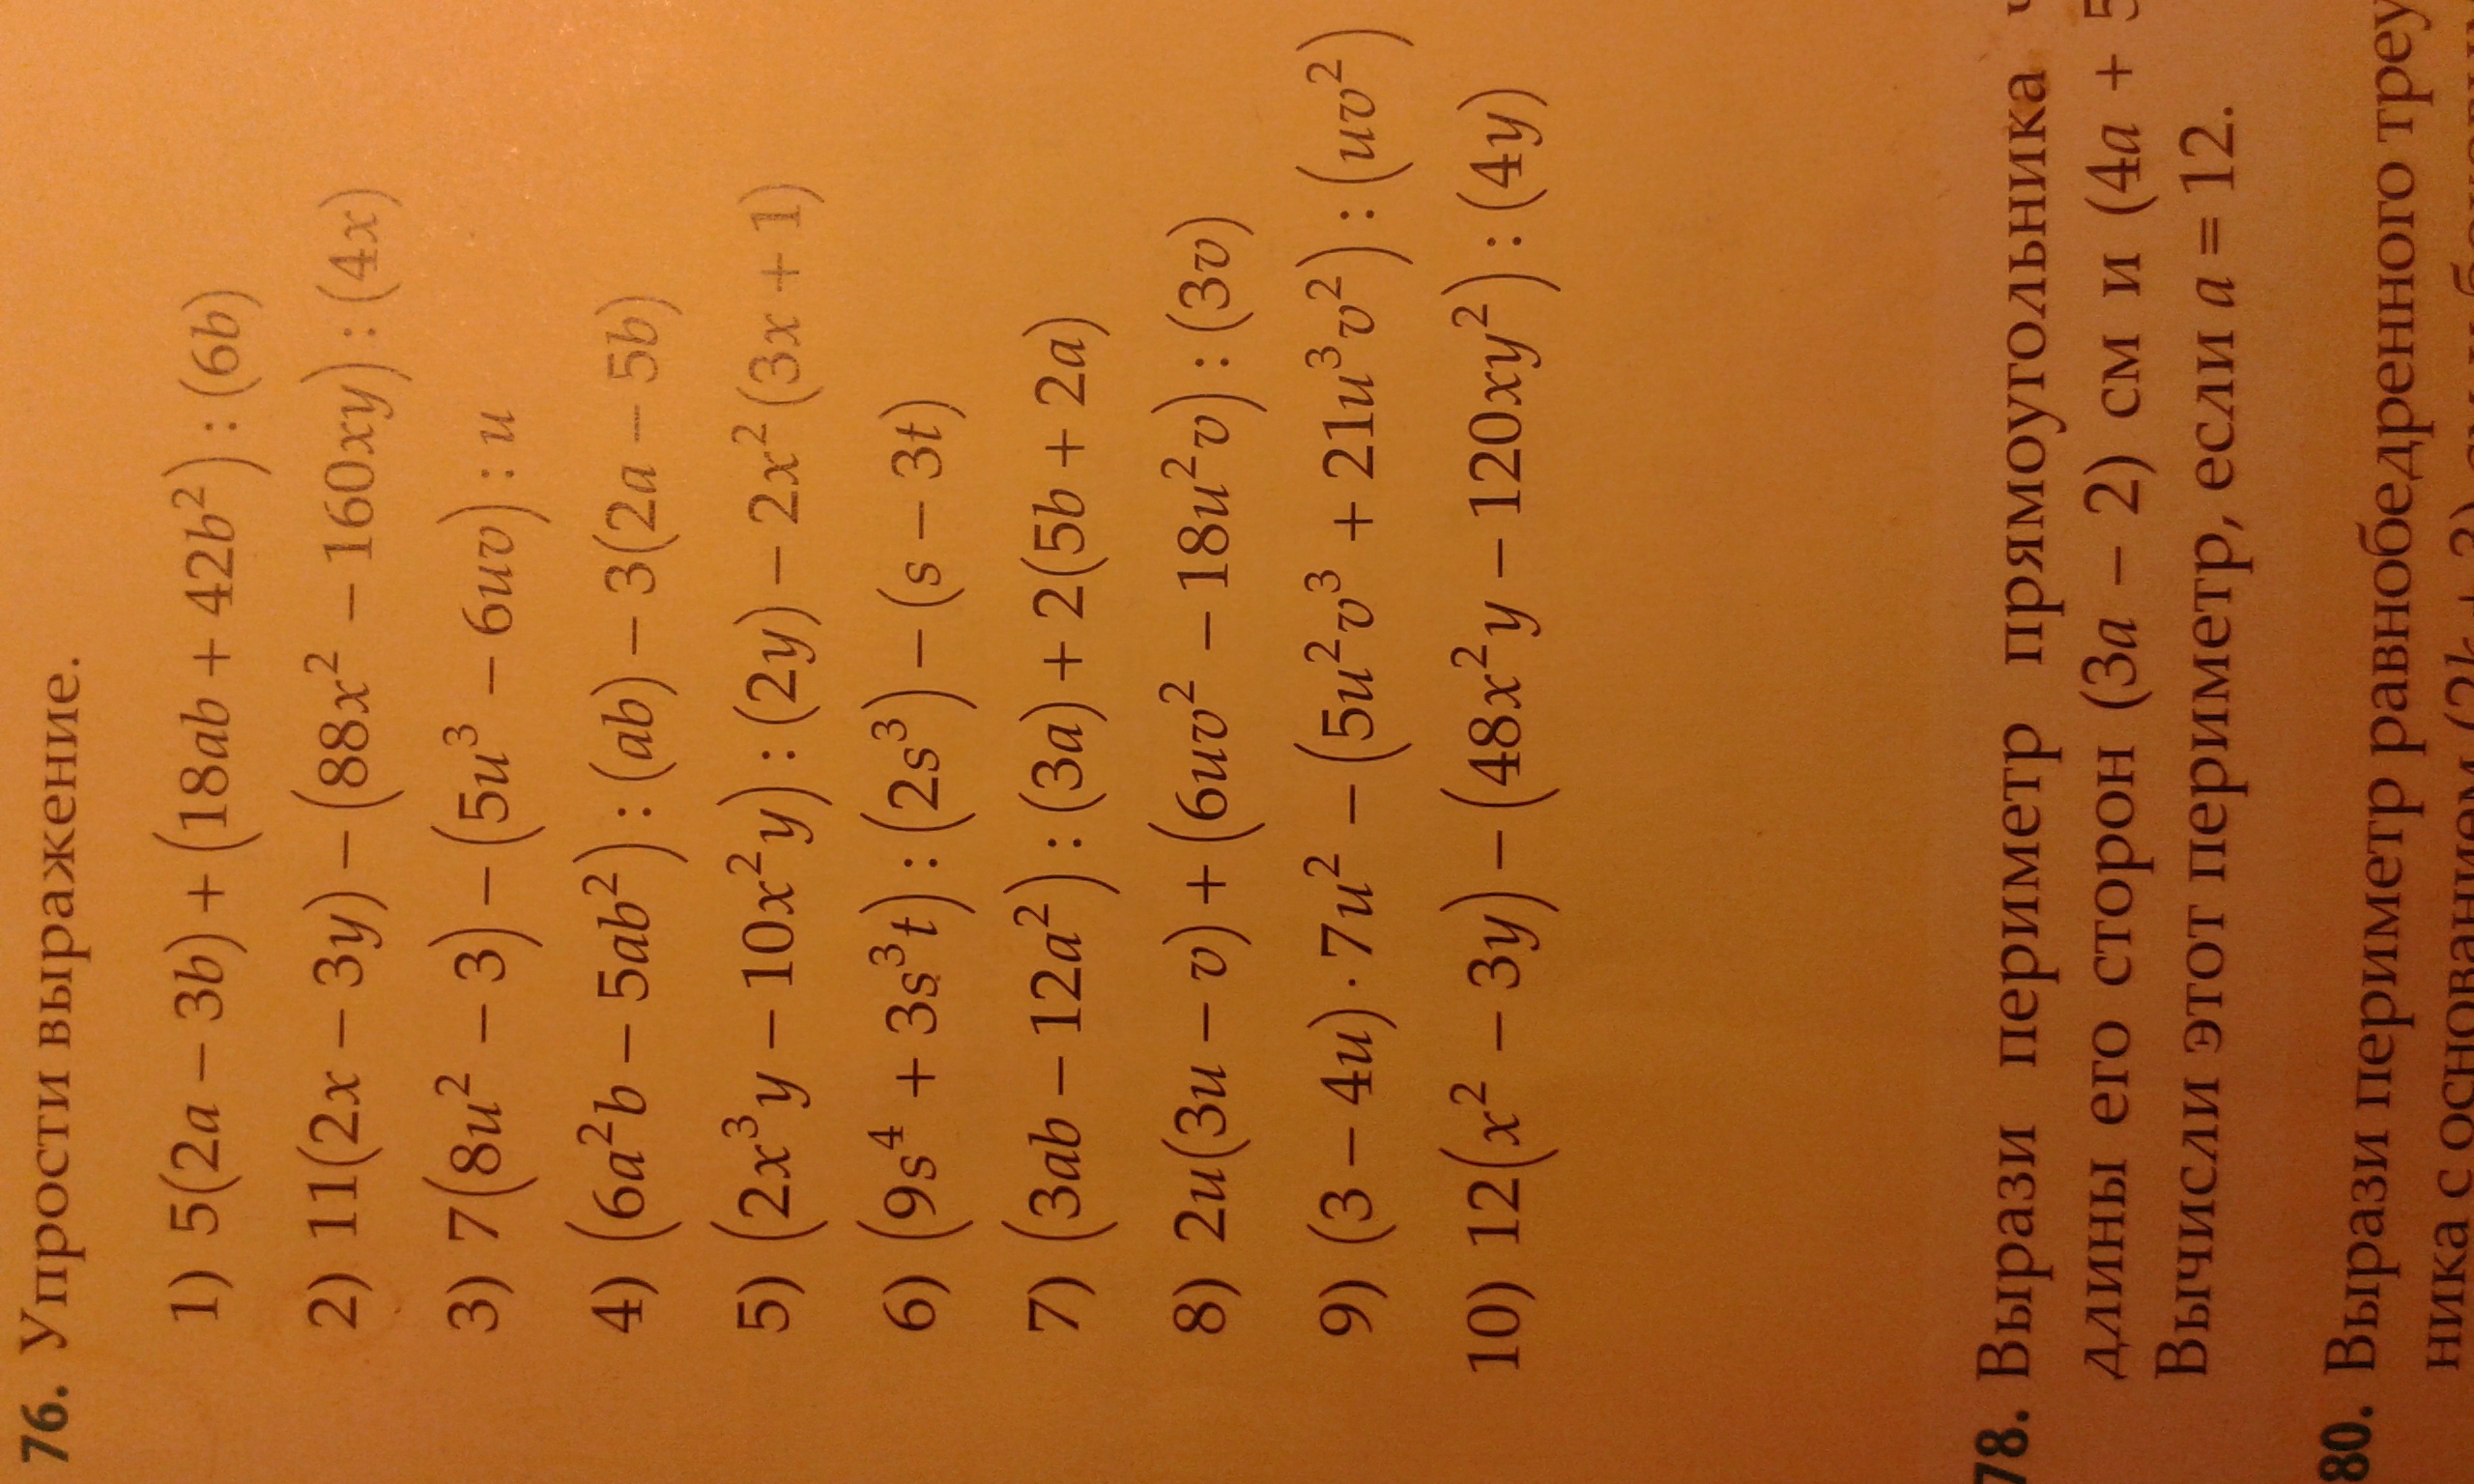 76. Упрости выражение.
1) 5(2a − 3b) + (18ab + 42b²) : (6b)
2) 11(2x − 3y) − (88x² − 160xy) : (4x)
3) 7(8u² − 3) − (5u³ − 6uv) : u
4) (6a²b − 5ab²) : (ab) − 3(2a − 5b)
5) (2x³y − 10x²y) : (2y) − 2x²(3x + 1)
6) (9s⁴ + 3s³t) : (2s³) − (s − 3t)
7) (3ab − 12a²) : (3a) + 2(5b + 2a)
8) 2u(3u − v) + (6uv² − 18u²v) : (3v)
9) (3 − 4u) · 7u² − (5u²v³ + 21u³v²) : (uv²)
10) 12(x² − 3y) − (48x²y − 120xy²) : (4y)
78. Вырази периметр прямоугольника
длины его сторон (3a − 2) см и (4a + 5
Вычисли этот периметр, если a = 12.
80. Вырази периметр равнобедренного треу
ника с основанием (2k + 3) см